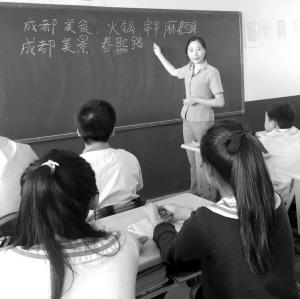 成都美食，火锅 串串 麻辣烫
成都美景，春熙路